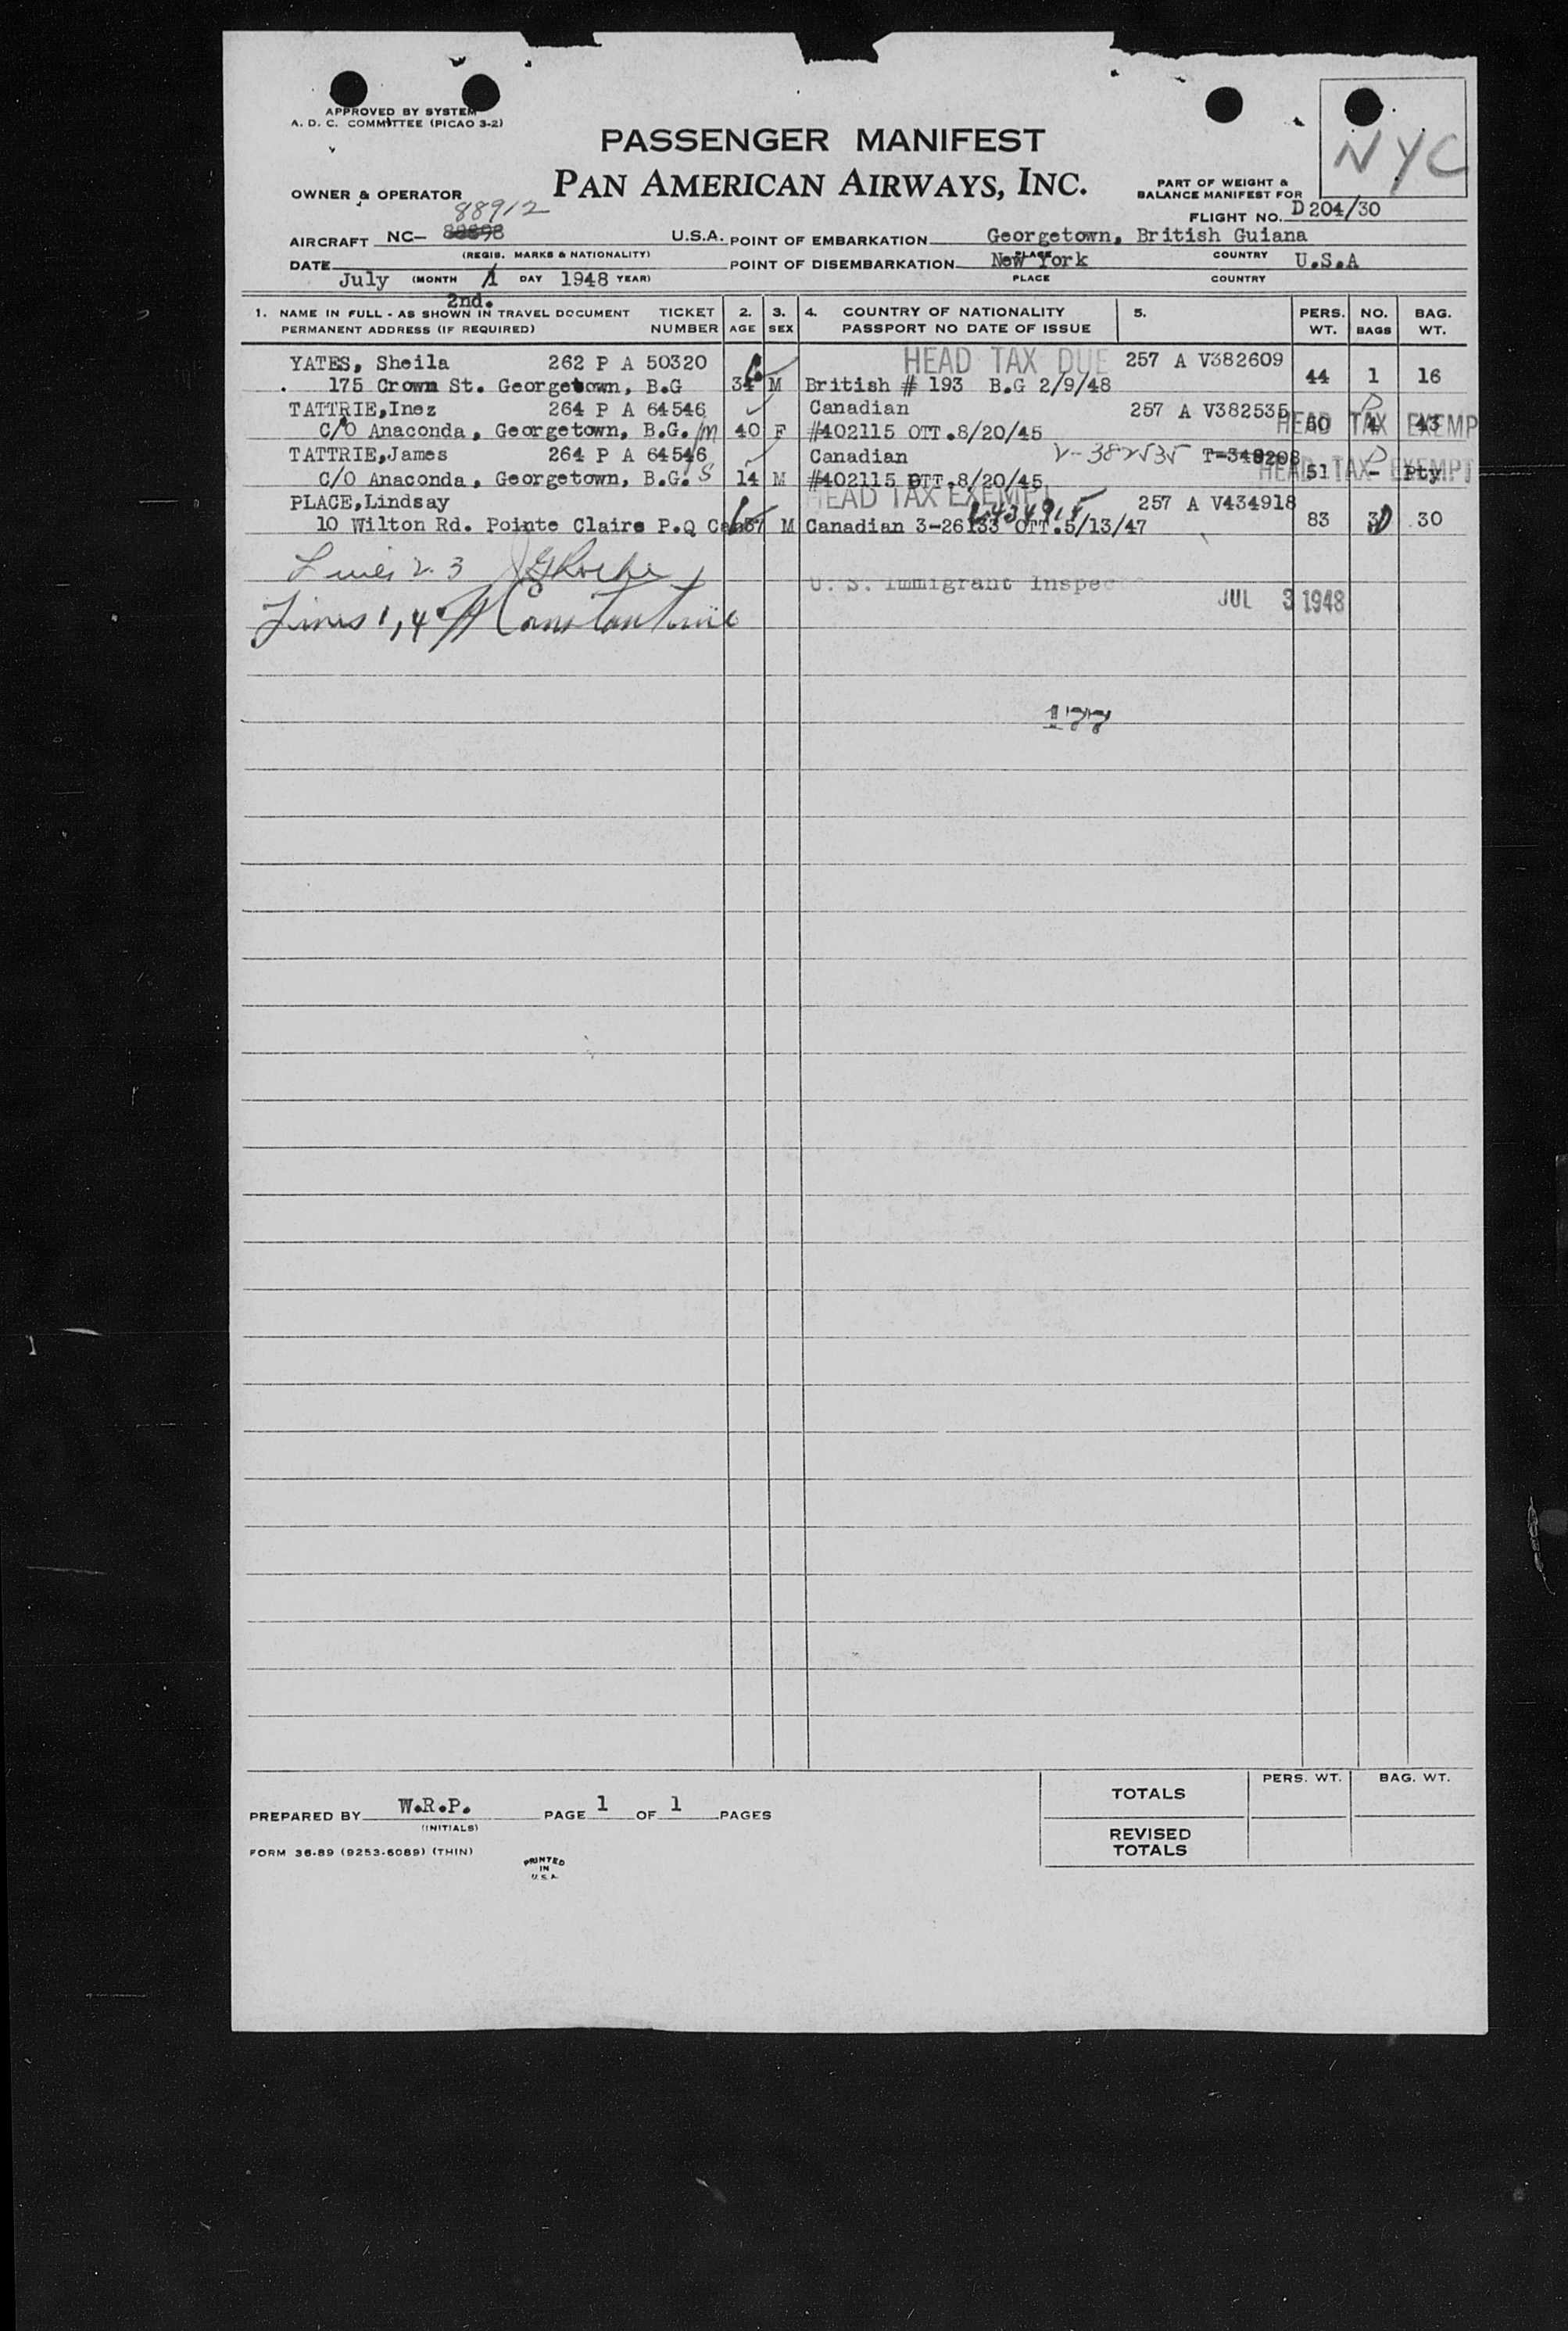 APPROVED BY SYSTEM
A. D. C. COMMITTEE (PICAO 3-2)
PASSENGER MANIFEST
NYC
OWNER & OPERATOR
PAN AMERICAN AIRWAYS, INC.
PART OF WEIGHT &
BALANCE MANIFEST FOR
FLIGHT NO. D204/30
88912
AIRCRAFT NC- 88898 U.S.A. POINT OF EMBARKATION Georgetown, British Guiana
(REGIS. MARKS & NATIONALITY) PLACE COUNTRY
DATE July (MONTH 1 DAY 1948 YEAR) POINT OF DISEMBARKATION New York U.S.A
PLACE COUNTRY
2nd.
1. NAME IN FULL - AS SHOWN IN TRAVEL DOCUMENT TICKET 2. 3. 4. COUNTRY OF NATIONALITY 5. PERS. NO. BAG.
PERMANENT ADDRESS (IF REQUIRED) NUMBER AGE SEX PASSPORT NO DATE OF ISSUE WT. BAGS WT.
YATES, Sheila 262 P A 50320 HEAD TAX DUE 257 A V382609
175 Crown St. Georgetown, B.G 34 M British # 193 B.G 2/9/48 44 1 16
TATTRIE,Inez 264 P A 64546 Canadian 257 A V382535 HEAD TAX EXEMP
C/O Anaconda, Georgetown, B.G. m 40 F #402115 OTT.8/20/45 60 4 43
TATTRIE,James 264 P A 64546 Canadian V-382535 HEAD TAX EXEMPT
C/O Anaconda, Georgetown, B.G. S 14 M #402115 OTT.8/20/45 51 - Pty
PLACE,Lindsay HEAD TAX EXEMPT 257 A V434918
10 Wilton Rd. Pointe Claire P.Q Can 37 M Canadian 3-26133 OTT.5/13/47 83 3 30
Lines 2.3
U. S. Immigrant Inspec
JUL 3 1948
Lines 1,4 Constantine
177
PREPARED BY W.R.P. PAGE 1 OF 1 PAGES
(INITIALS)
FORM 36-89 (9253-6089) (THIN)
PRINTED
IN
U.S.A.
PERS. WT. BAG. WT.
TOTALS
REVISED
TOTALS